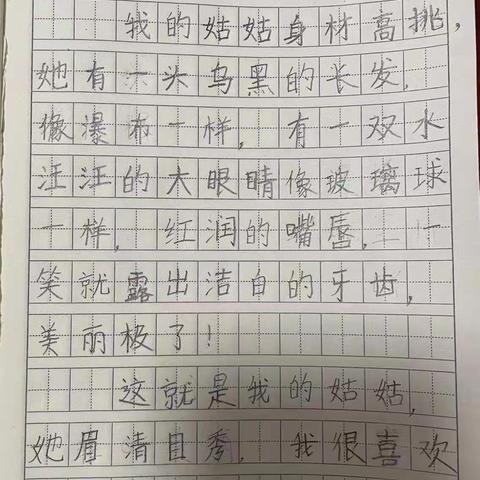 我的姑姑身材高挑,
她有一头乌黑的长发,
像瀑布一样,有一双水
汪汪的大眼睛像玻璃球
一样,红润的嘴唇,一
笑就露出洁白的牙齿,
美丽极了!
这就是我的姑姑,
她眉清目秀,我很喜欢